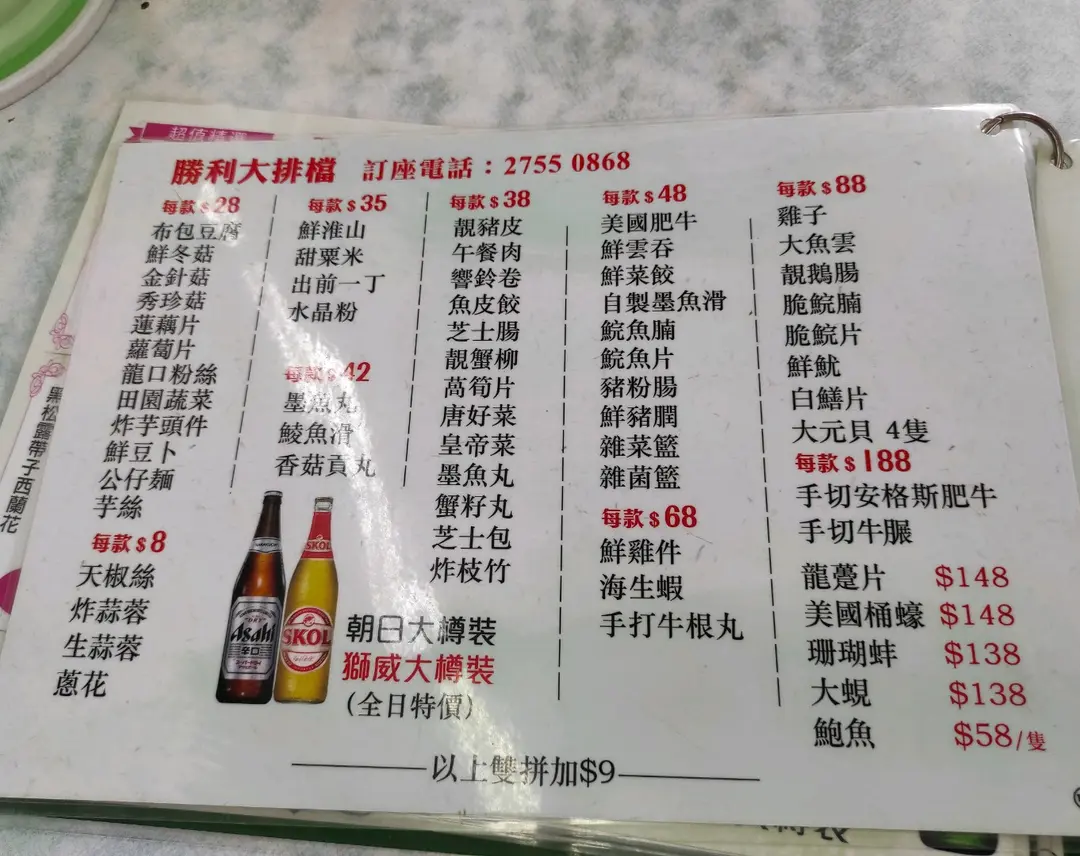 超值精選
勝利大排檔 訂座電話：2755 0868
每款 $28
布包豆腐
鮮冬菇
金針菇
秀珍菇
蓮藕片
蘿蔔片
龍口粉絲
田園蔬菜
炸芋頭件
鮮豆卜
公仔麵
芋絲
每款 $8
天椒絲
炸蒜蓉
生蒜蓉
蔥花
每款 $35
鮮淮山
甜粟米
出前一丁
水晶粉
每款 $42
墨魚丸
鯪魚滑
香菇貢丸
每款 $38
靚豬皮
午餐肉
響鈴卷
魚皮餃
芝士腸
靚蟹柳
萵筍片
唐好菜
皇帝菜
墨魚丸
蟹籽丸
芝士包
炸枝竹
每款 $48
美國肥牛
鮮雲吞
鮮菜餃
自製墨魚滑
鯇魚腩
鯇魚片
豬粉腸
鮮豬膶
雜菜籃
雜菌籃
每款 $68
鮮雞件
海生蝦
手打牛根丸
每款 $88
雞子
大魚雲
靚鵝腸
脆鯇腩
脆鯇片
鮮魷
白鱔片
大元貝 4隻
每款 $188
手切安格斯肥牛
手切牛𦟌
龍躉片 $148
美國桶蠔 $148
珊瑚蚌 $138
大蜆 $138
鮑魚 $58/隻
Asahi
辛口
SKOL
SKOL
朝日大樽裝
獅威大樽裝
(全日特價)
以上雙拼加$9
黑松露帶子西蘭花